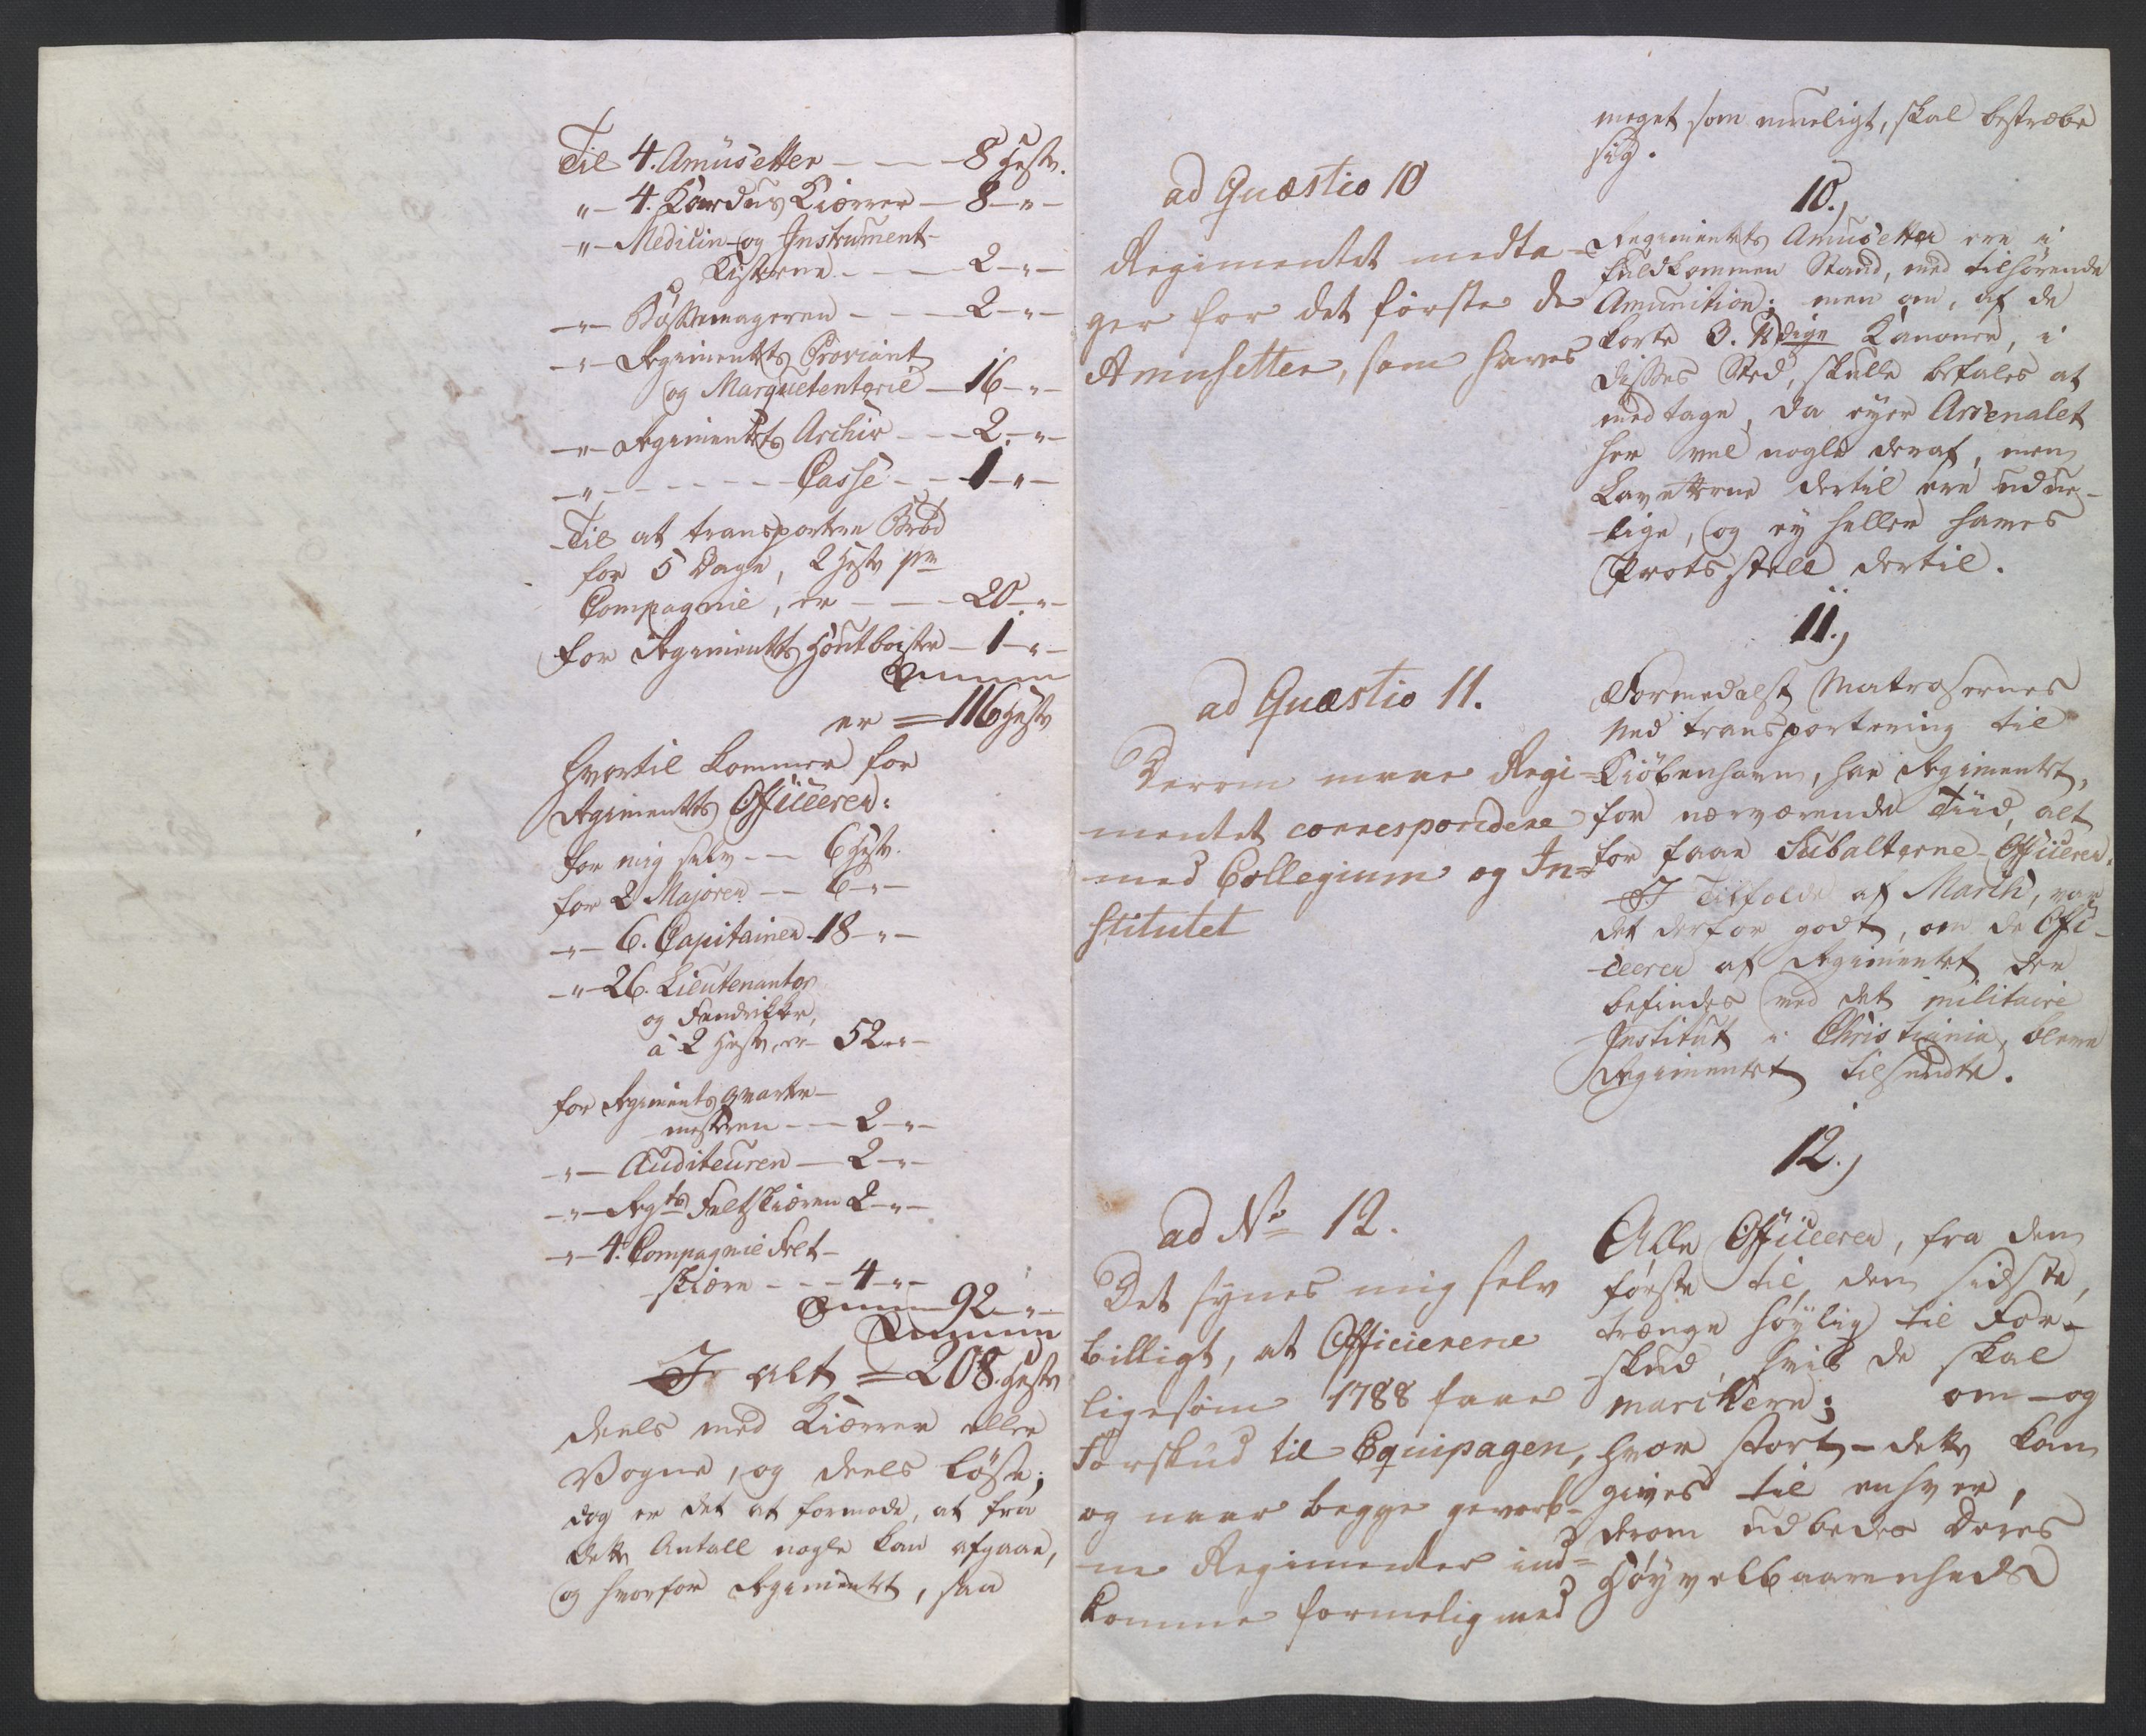 Til 4. Amusetter — — 8 Heste.
" — 4. Kardus Kiærrer — 8 — " —
— " — Medicin- og Instrument-
Kisterne — — — 2 — " —
— " — Bøssemageren — — — 2 — " —
— " — Regimentets Proviant
og Marquetenterie — 16 — " —
— " — Regimentets Archiv — — 2 — " —
— " — — — — — Casse — — 1 — " —
Til at transportere Brød
for 5 Dage, 2 Heste pr
Compagnie, er — — — 20 — " —
for Regimentets Houtboister — 1 — " —
Summa
er = 116 Heste
Hvortil kommer for
Regimentets Officerer:
for mig selv — — 6 Heste.
for 2 Majorer — — 6 — " —
— " — 6. Capitainer 18 — " —
— " — 26. Lieutenanter
og Fendrikker,
à 2 Heste, er 52 — " —
for Regiments Qvarteer-
mesteren — — 2 — " —
— " — Auditeuren — 2 — " —
— " — Regts Feltskiæren 2 — " —
— " — 4. Compagnie Felt-
skiære — — — 4 — " —
Summa 92 — " —
Summa
I alt = 208. Heste
deels med Kiærrer eller
Vogne, og deels løse;
dog er det at formode, at fra
dette Antall nogle kan afgaae,
og hvorfor Regimentet, saa
ad Quæstio 10
Regimentet medta-
ger for det første de
Amusetter, som haves
ad Quæstio 11.
Derom maae Regi-
mentet correspondere
med Collegium og In-
stitutet
ad No 12.
Det synes mig selv
billigt, at Officierene
ligesom 1788 faae
Forskud til Equipagen,
og naar begge gevorb-
ne Regimenter ind-
komme formelig med
meget som mueligt, skal bestræbe
sig.
10.,
Regimentets Amusetter ere i
fuldkommen Stand, med tilhørende
Amunition; men om, af de
korte 3. ℔dige Kanoner, i
disses Sted, skulle befales at
medtage, da eyer Arsenalet
her vel nogle deraf, men
Lavetterne dertil ere udue-
-lige, og ey heller haves
Protsstell dertil.
11.,
Formedelst Matrosernes
Ned transportering til
Kiöbenhavn, har Regimentet,
for nærværende Tiid, alt
for faae Subalterne-Officerer.
I Tilfelde af March, var
det derfor godt, om de Offi-
-ceerer af Regimentet der
befindes ved det militaire
Institut i Christiania, bleve
Regimentet tilsendte.
12.,
Alle Officeerer, fra den
første til den sidste,
trænge høylig til For-
-skud, hvis de skal
marchere; om — og
hvor stort — dette kan
gives til enhver,
derom udbedes Deres
Høyvelbaarenheds